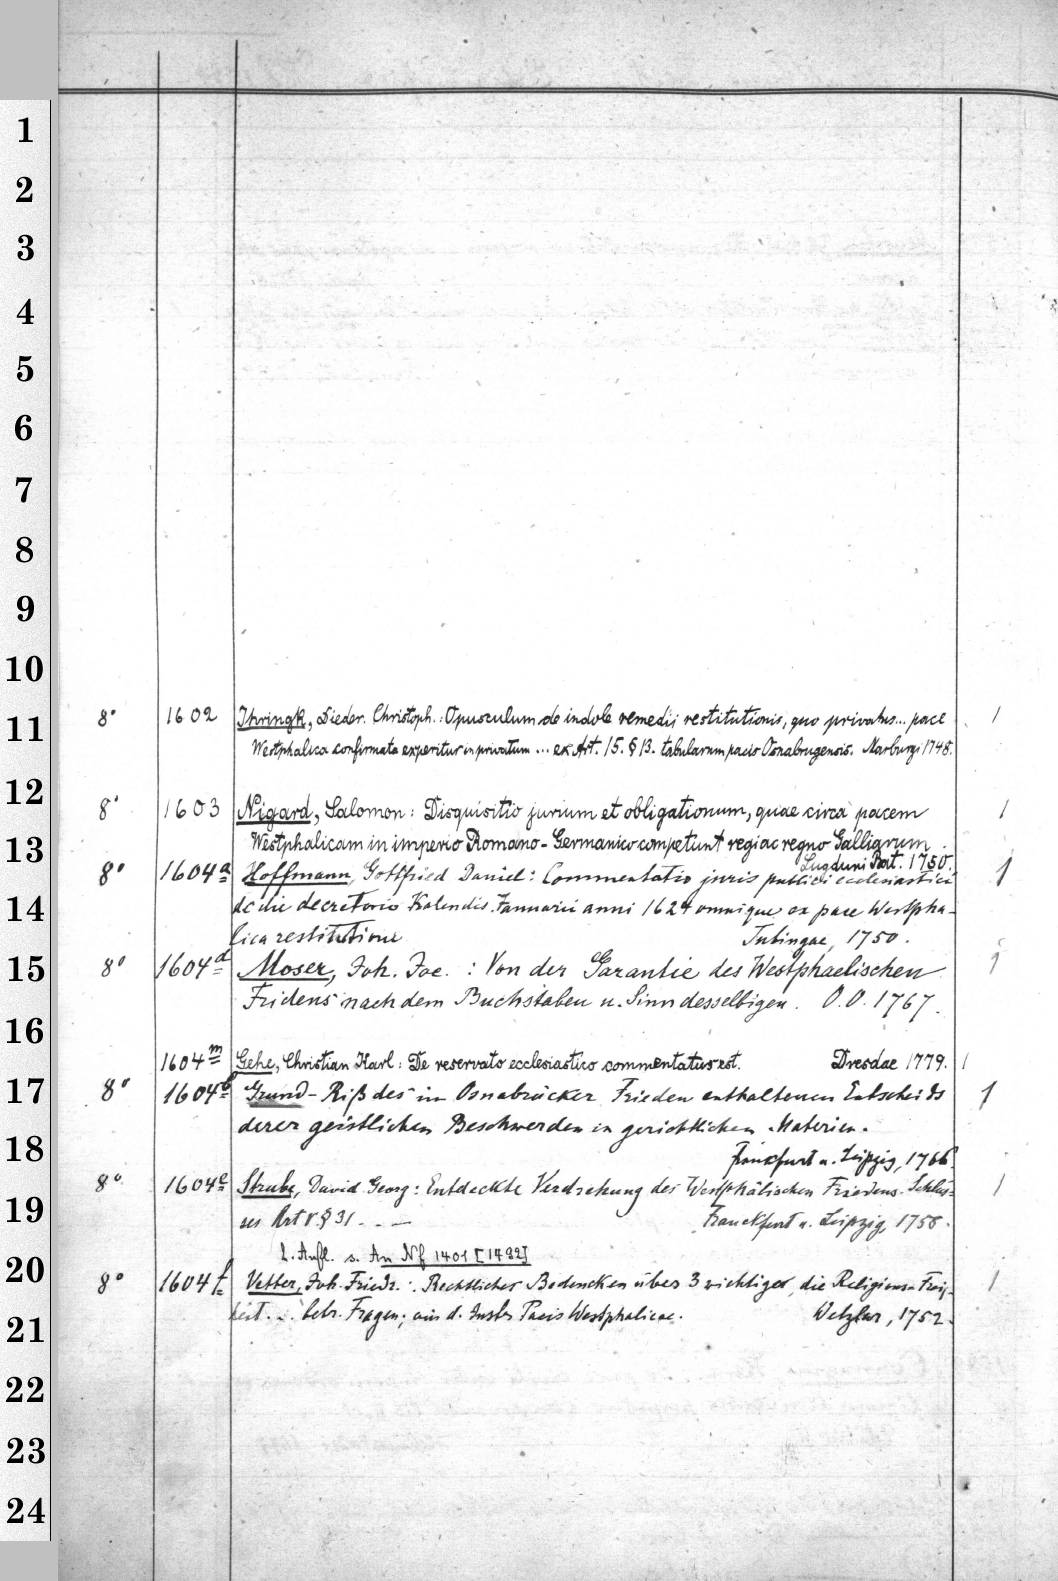 1
2
3
4
5
6
7
8
9
10
11
12
13
14
15
16
17
18
19
20
21
22
23
24
8° 1602 Ihringk, Dieder. Christoph.: Opusculum de indole remedii restitutionis, quo privatus... pace 1
Westphalica confirmata experitur in privatum ... ex Art. 15. § 13. tabularum pacis Osnabrugensis. Marburgi 1748.
8° 1603 Nigard, Salomon: Disquisitio jurium et obligationum, quae circa pacem 1
Westphalicam in imperio Romano-Germanico competunt regi ac regno Galligrum.
Lugduni Bat. 1750.
8° 1604a Hoffmann, Gottfried Daniel: Commentatio juris publici ecclesiastici 1
de die decretorio Kalendis Januarii anni 1624 omnique ex pace Westpha-
lica restitutione Tubingae, 1750.
8° 1604d Moser, Joh. Jac.: Von der Garantie des Westphaelischen 1
Fridens nach dem Buchstaben u. Sinn desselbigen. O.O. 1767.
1604m Gehe, Christian Karl: De reservato ecclesiastico commentatus est. Dresdae 1779. 1
8° 1604b Grund-Riß des im Osnabrücker Frieden enthaltenen Entscheids 1
derer geistlichen Beschwerden in gerichtlichen Materien.
Franckfurt u. Leipzig, 1766.
8° 1604e Strube, David Georg: Entdeckte Verdrehung des Westphälischen Friedens-Schlus- 1
ses Art V. § 31 . - — Franckfurt u. Leipzig, 1758.
2. Aufl. s. An Nf 1401 [1492]
8° 1604f Vetter, Joh. Friedr.: Rechtliches Bedencken über 3 wichtiger, die Religions-Frei- 1
heit... betr. Fragen; aus d. Instr. Pacis Westphalicae. Wetzlar, 1752.